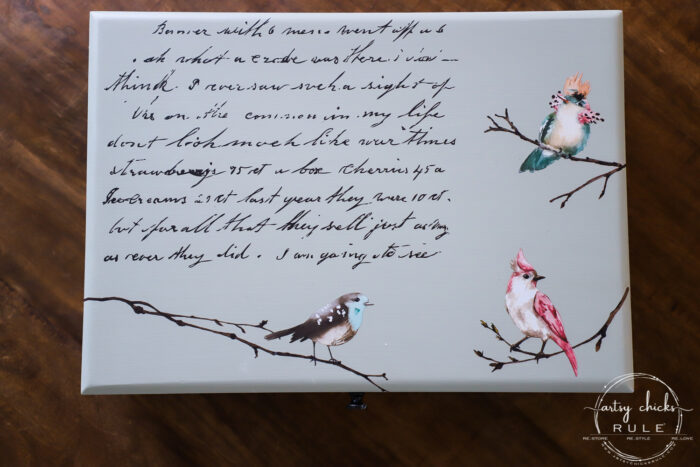 with 6 men went off a 6
oh what a crode was there i now
think. I never saw such a sight of
on the common in my life
dont look much like war times
strawberrys 75 ct a box cherries 45 a
Icecreams 25 ct last year they were 10 ct.
but for all that they sell just as
as ever they did. I am going to see
artsy chicks
RULE
RE.STORE RE.STYLE RE.LOVE
WWW.ARTSYCHICKSRULE.COM